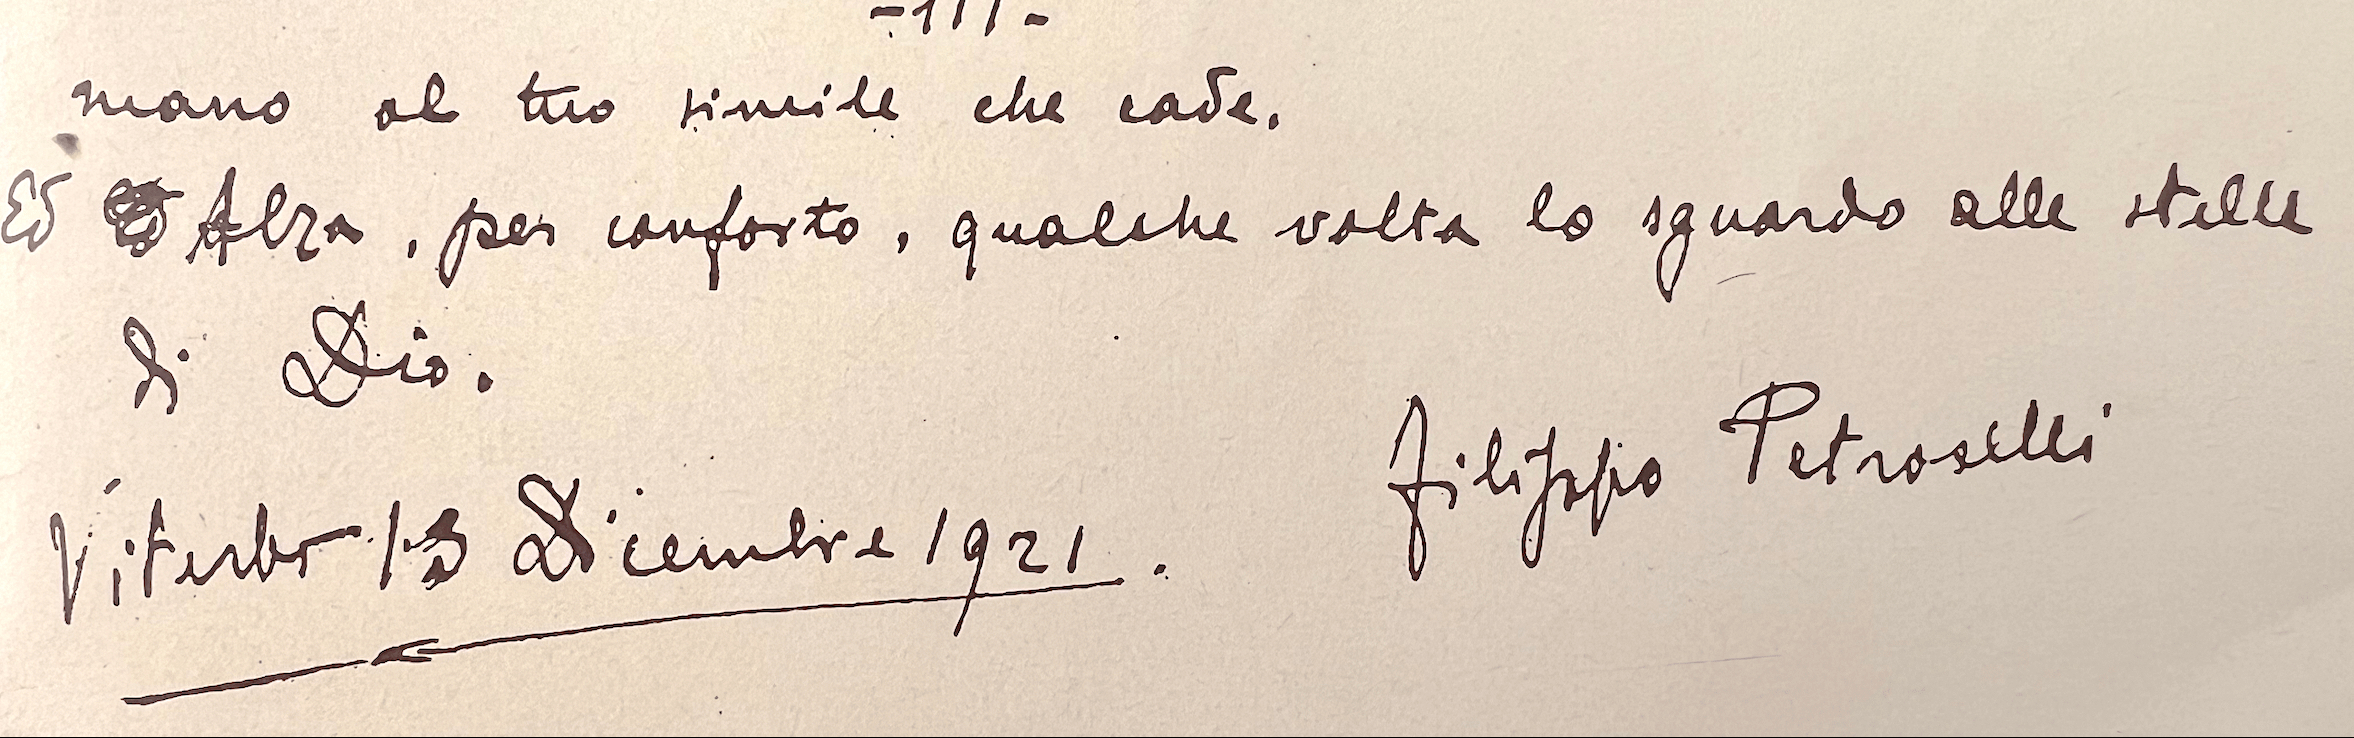 -III-
mano al tuo simile che cade.
Ed Alza, per conforto, qualche volta lo sguardo alle stelle
di Dio.
Filippo Petroselli
Viterbo 13 Dicembre 1921.